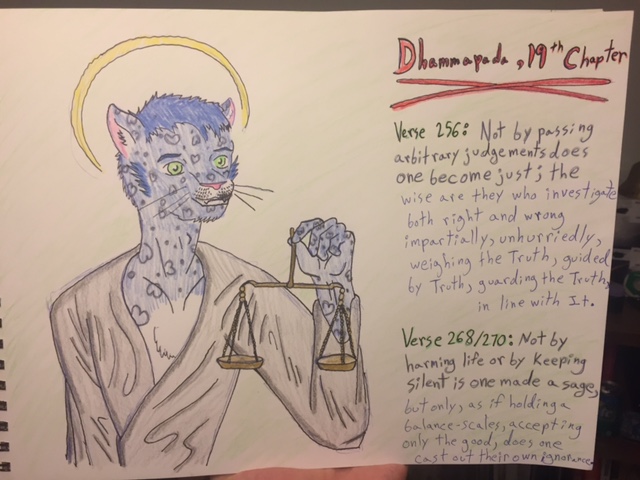 Dhammapada, 19th Chapter
Verse 256: Not by passing
arbitrary judgements does
one become just; the
wise are they who investigate
both right and wrong
impartially, unhurriedly,
weighing the Truth, guided
by Truth, guarding the Truth,
in line with It.
Verse 268/270: Not by
harming life or by Keeping
silent is one made a sage,
but only, as if holding a
balance-scales, accepting
only the good, does one
cast out their own ignorance.